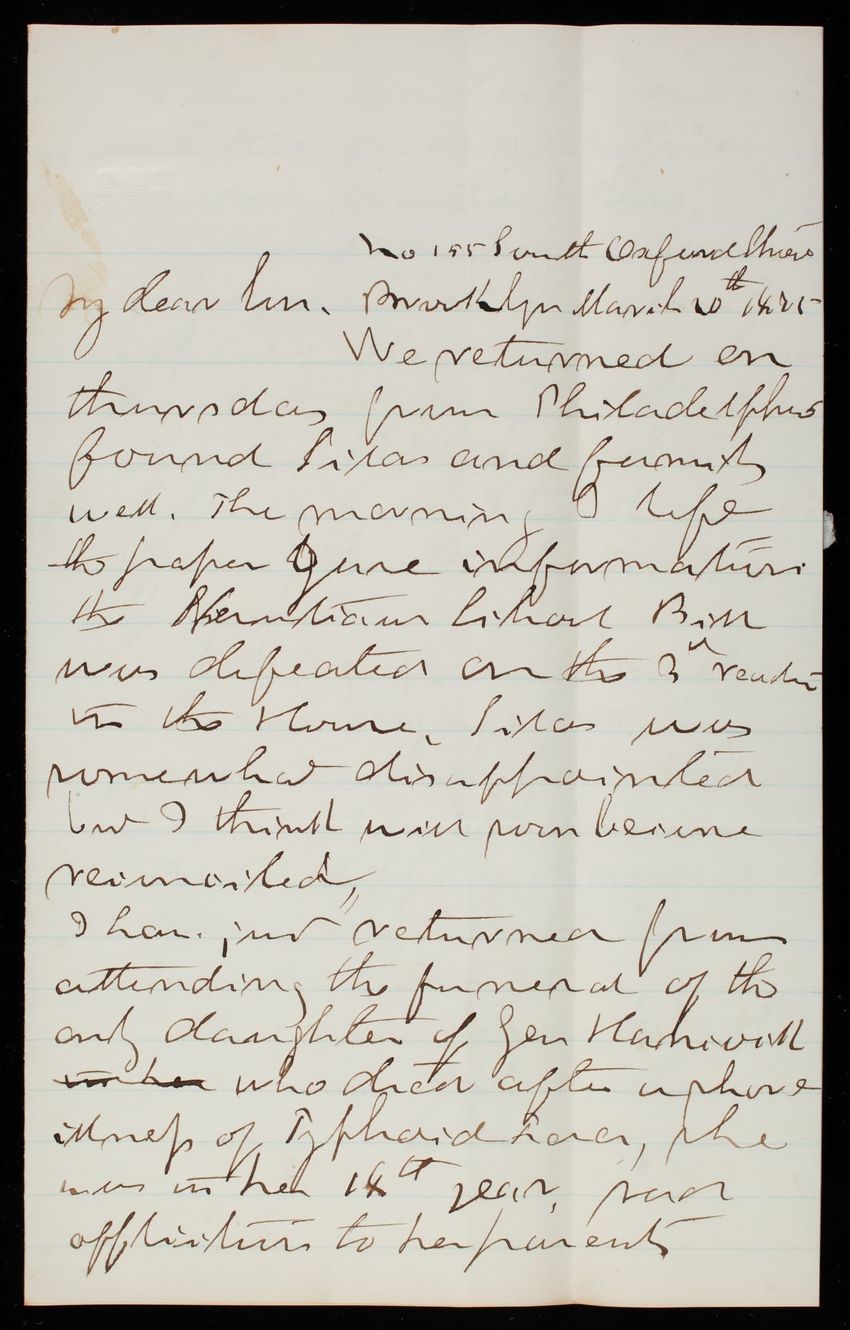 No 155 South Oxford Street
My dear Son. Brooklyn March 20th 1875
We returned on
thursday from Philadelphia
found Silas and family
well. The morning I left
the paper gave information
the School Bill
was defeated on the 3d readin
in the House, Silas was
somewhat disappointed
but I think will soon become
reconciled,
I have just returned from
attending the funeral of the
only daughter of Gen
who died after a short
illness of Typhoid Fever, she
was in her 18th year, sad
affliction to her parents